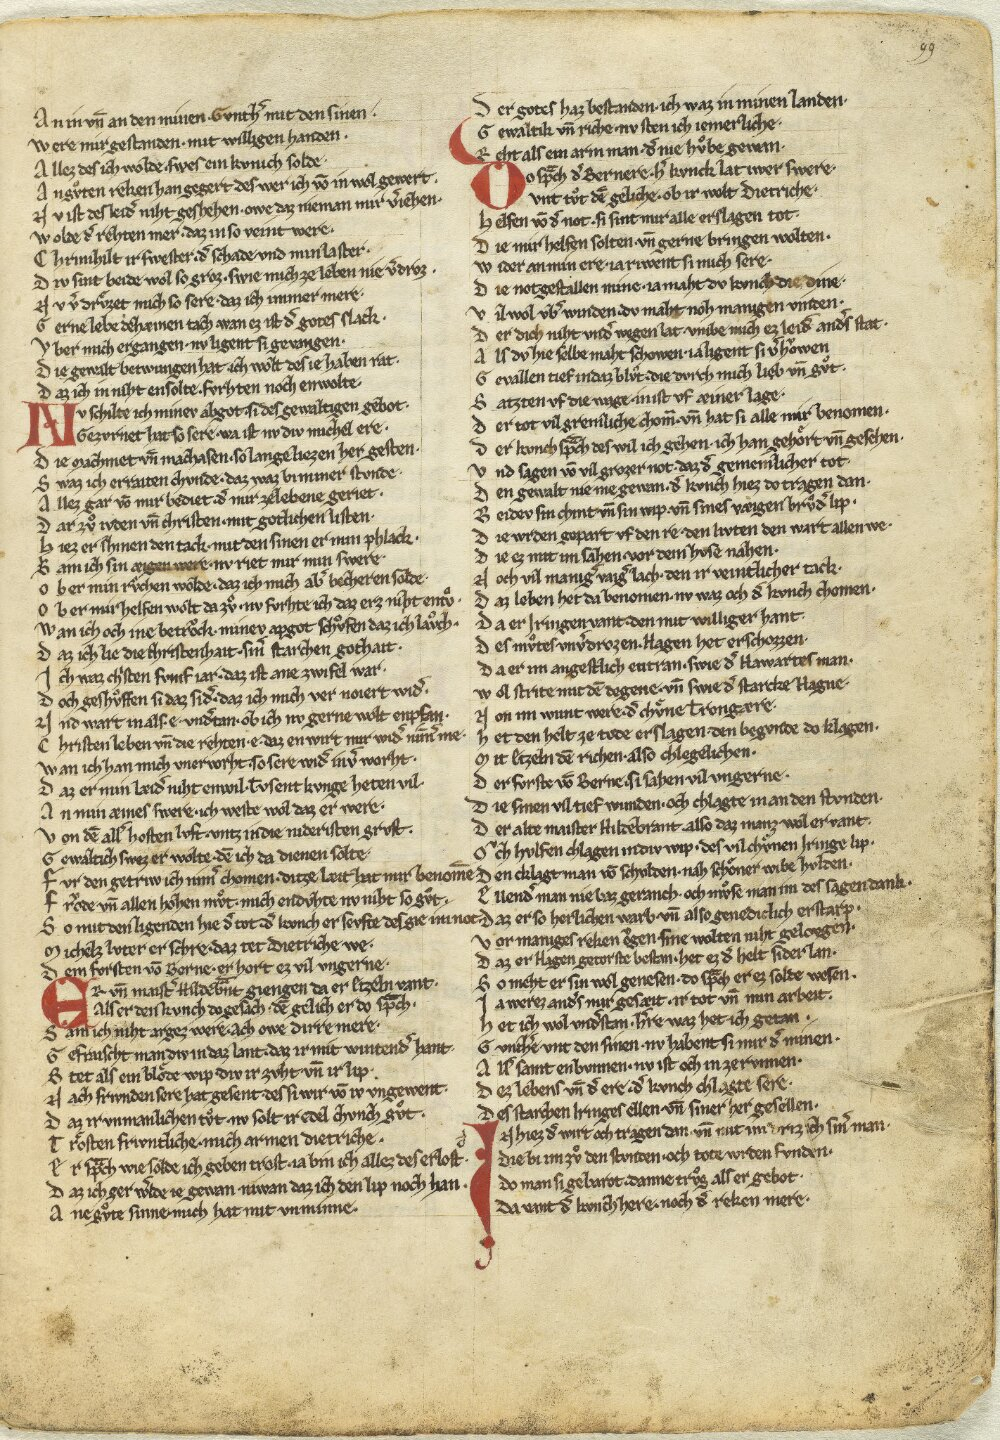 99
A n in vn̄ an den minen · Gvntheͬ mit den sinen ·
w ere mir gestanden · mit willigen handen ·
A llez des ich wolde · swes ein kvnich solde ·
A n gvͦten reken han gegert des wer ich vō in wol gewert ·
N v ist des leid̾ niht geshehen · owe daz nieman mir v̾iehen ·
w olde d̾ rehten mer · daz in so veint were ·
C hrimhilt ir swester · d̾ schade vnd min laster ·
D iv sint beide wol so groz · swie mich ze leben nie v̾droz ·
N v v̾drvͦzet mich so sere · daz ich immer mere ·
G erne lebe deheinen tach wan ez ist d̾ gotes slack ·
V ber mich ergangen · nv ligent si gevangen ·
D ie gewalt betwungen hat · ich wolt des ie haben rat ·
D az ich in niht ensolte · fvrhten noch enwolte
N v schilte ich miner abgot · si des gewaltigen gebot ·
Gezvrnet hat so sere · wa ist nv div michel ere ·
D ie machmet vn̄ machasen · so lange liezen her gesten ·
S waz ich erraiten chvnde · daz waz bi miner stvnde ·
A llez gar vō mir bediet · d̾ mir ze lebene geriet ·
D ar zvͦ ivden vn̄ christen · mit gotlichen listen ·
h iez er shinen den tack · mit den sinen er min phlack ·
B am ich sin æigen were · nv riet mir min swere
o ber min rvͦchen wolde · daz ich mich ab̾ becheren solde ·
o b er mir helfen wolt da zvͦ · nv forhte ich daz erz niht entvͦ ·
w an ich och ine betrvͦck · miner apgot schvͦfen daz ich lavͦch ·
D az ich lie die christenhait · sin̾ starchen gothait ·
I ch waz christen fvnf iar · daz ist ane zwifel war ·
D och geshvͦffen si daz sid̾ · daz ich mich ver noiert wid̾ ·
N nd wart in als · e · vnd̾tan · ob ich nv gerne wolt enpfan ·
C hristen leben vn̄ die rehten · e · daz en wirt mir wid̾ nim̄ me ·
w an ich han mich vnerworht · so sere wid̾ inv̾ worht ·
D az er min læid̾ niht enwil · Tvsent kvnge heten vil ·
A n min æines swere · ich weste wol daz er were ·
V on dē all̾ hosten lvft · vntz in die nideristen grvft ·
G ewaltich swez er wolte · dē ich da dienen solte
F vr den getriw ich nim̄ chomen · ditze læit hat mir benomē
F rͦde vn̄ allen hohen mvͦt · mich endvhte nv niht so gvͦt ·
S o mit den ligenden hie d̾ tot · d̾ kvnch er sevfte des gie im not ·
M ichels lvter er schre · daz tet dietriche we ·
D em forsten vō Berne · er hort ez vil vngerne ·
E R · vn̄ maist̾ Hildebrant giengen da er Etzeln vant ·
Als er den kvnch do gesach · dē gelich er do sprach ·
S am ich niht argez were · ach owe dirre mere ·
G efraischt man div in daz lant · daz ir mit wintend̾ hant ·
S tet als ein blode wip div ir zvht vn̄ ir lip ·
N ach frivnden sere hat gesent · des si wir vō iv vngewent ·
D az ir vnmanlichen tvͦt · nv solt ir edel chvnch gvͦt ·
T rosten frivntliche · mich armen dietriche ·
E r sprach wie solde ich geben trost · ia bin ich allez des erlost ·
D az ich ger werlde ie gewan · niwan daz ich den lip noch han ·
A ne gvͦte sinne · mich hat mit vnminne ·
D er gotes haz bestanden · ich waz in minen landen ·
G ewaltik vn̄ riche · nv sten ich iemerliche ·
R eht als ein arm man · d̾ nie hvͦbe gewan ·
S o sprach d̾ Bernere · h̾ kvnck lat iwer swere ·
vnt tvͦt dē geliche · ob ir wolt Dietriche ·
h elfen vō d̾ not · si sint mir alle erslagen tot ·
D ie mir helfen solten · vn̄ gerne bringen wolten ·
w ider an min ere · ia riwent si mich sere ·
D ie notgestallen mine · ia maht dv kvnch die dine ·
V il wol vb̾ winden · dv maht noh manigen vinden ·
D er dich niht vnd̾ wegen lat · vmbe mich ez leid̾ and̾s stat ·
A ls dv hie selbe maht schowen · ia ligent si v̾hvͦwen
G evallen tief in daz blvͦt · die dvrch mich lieb vn̄ gvͦt ·
S atzten vf die wage · mist vf æiner lage ·
D er tot vil gremliche chom · vn̄ hat si alle mir benomen ·
D er kvnch sprach des wil ich gehen · ich han gehort vn̄ gesehen ·
V nd sagen vō vil grozer not · daz d̾ gemeinlicher tot ·
D en gewalt nie me gewan · d̾ kvnch hiez do tragen dan ·
B eidev sin chint vn̄ sin wip · vn̄ sines væigen brvͦd̾ lip ·
D ie wrden gopart vf den re · den livten den wart allen we ·
D ie ez mit im sahen · vor dem hvse nahen ·
N och vil manig̾ vaig̾ lach · den ir veintlicher tack ·
D az leben het da benomen · nv waz och d̾ kvnch chomen ·
D a er Iringen vant · den mit williger hant ·
D es mvͦtes vnv̾drozen · Hagen het erschozzen ·
D a er im angestlich entran · swie d̾ Hawartes man ·
w ol strite mit dē degene · vn̄ swie d̾ starcke Hagne ·
N on im wunt were · d̾ chvͦne Trongære ·
h et den helt ze tode erslagen · den begvnde do klagen ·
M it Etzeln dē richen · also chlegelichen ·
D er forste vō Berne · si sahen vil vngerne ·
D ie sinen vil tief wunden · och chlagte in an den stvnden ·
D er alte maister Hildebrant · also daz manz wol ervant ·
O ch hvlfen chlagen in div wip · des vil chvͦnen Iringe lip ·
D en cklagt man vō schvlden · nah schoner wibe hvlden ·
E llend̾ man nie baz geranch · och mvͦse man im des sagen danck ·
D az er so herlichen warb · vn̄ also genediclich erstarp ·
V or maniges reken ogen · sine wolten niht gelovgen ·
D az er Hagen getorste bestan · het ez d̾ helt sider lan ·
S o meht er sin wol genesen · do sprach er ez solde wesen ·
I a werez and̾s mir gesæit · ir tot vn̄ min arbeit ·
h et ich wol vnd̾stan · h̾re waz het ich getan ·
G vnth̾ vnt den sinen · nv habent si mir d̾ minen ·
A ll̾ samt enbvnnen · nv ist och in zervnnen ·
D ez lebens vn̄ d̾ ere · d̾ kvnch chlagte sere ·
D es starchen Iringes ellen · vn̄ siner her gesellen ·
I N hiez d̾ wirt och tragen dan · vn̄ mit im drizich sin̾ man ·
die bi im zvͦ den stvnden · och tote wrden fvnden ·
do man si gebarot · danne trvͦg als er gebot ·
da vant d̾ kvnch here · noch d̾ reken mere ·